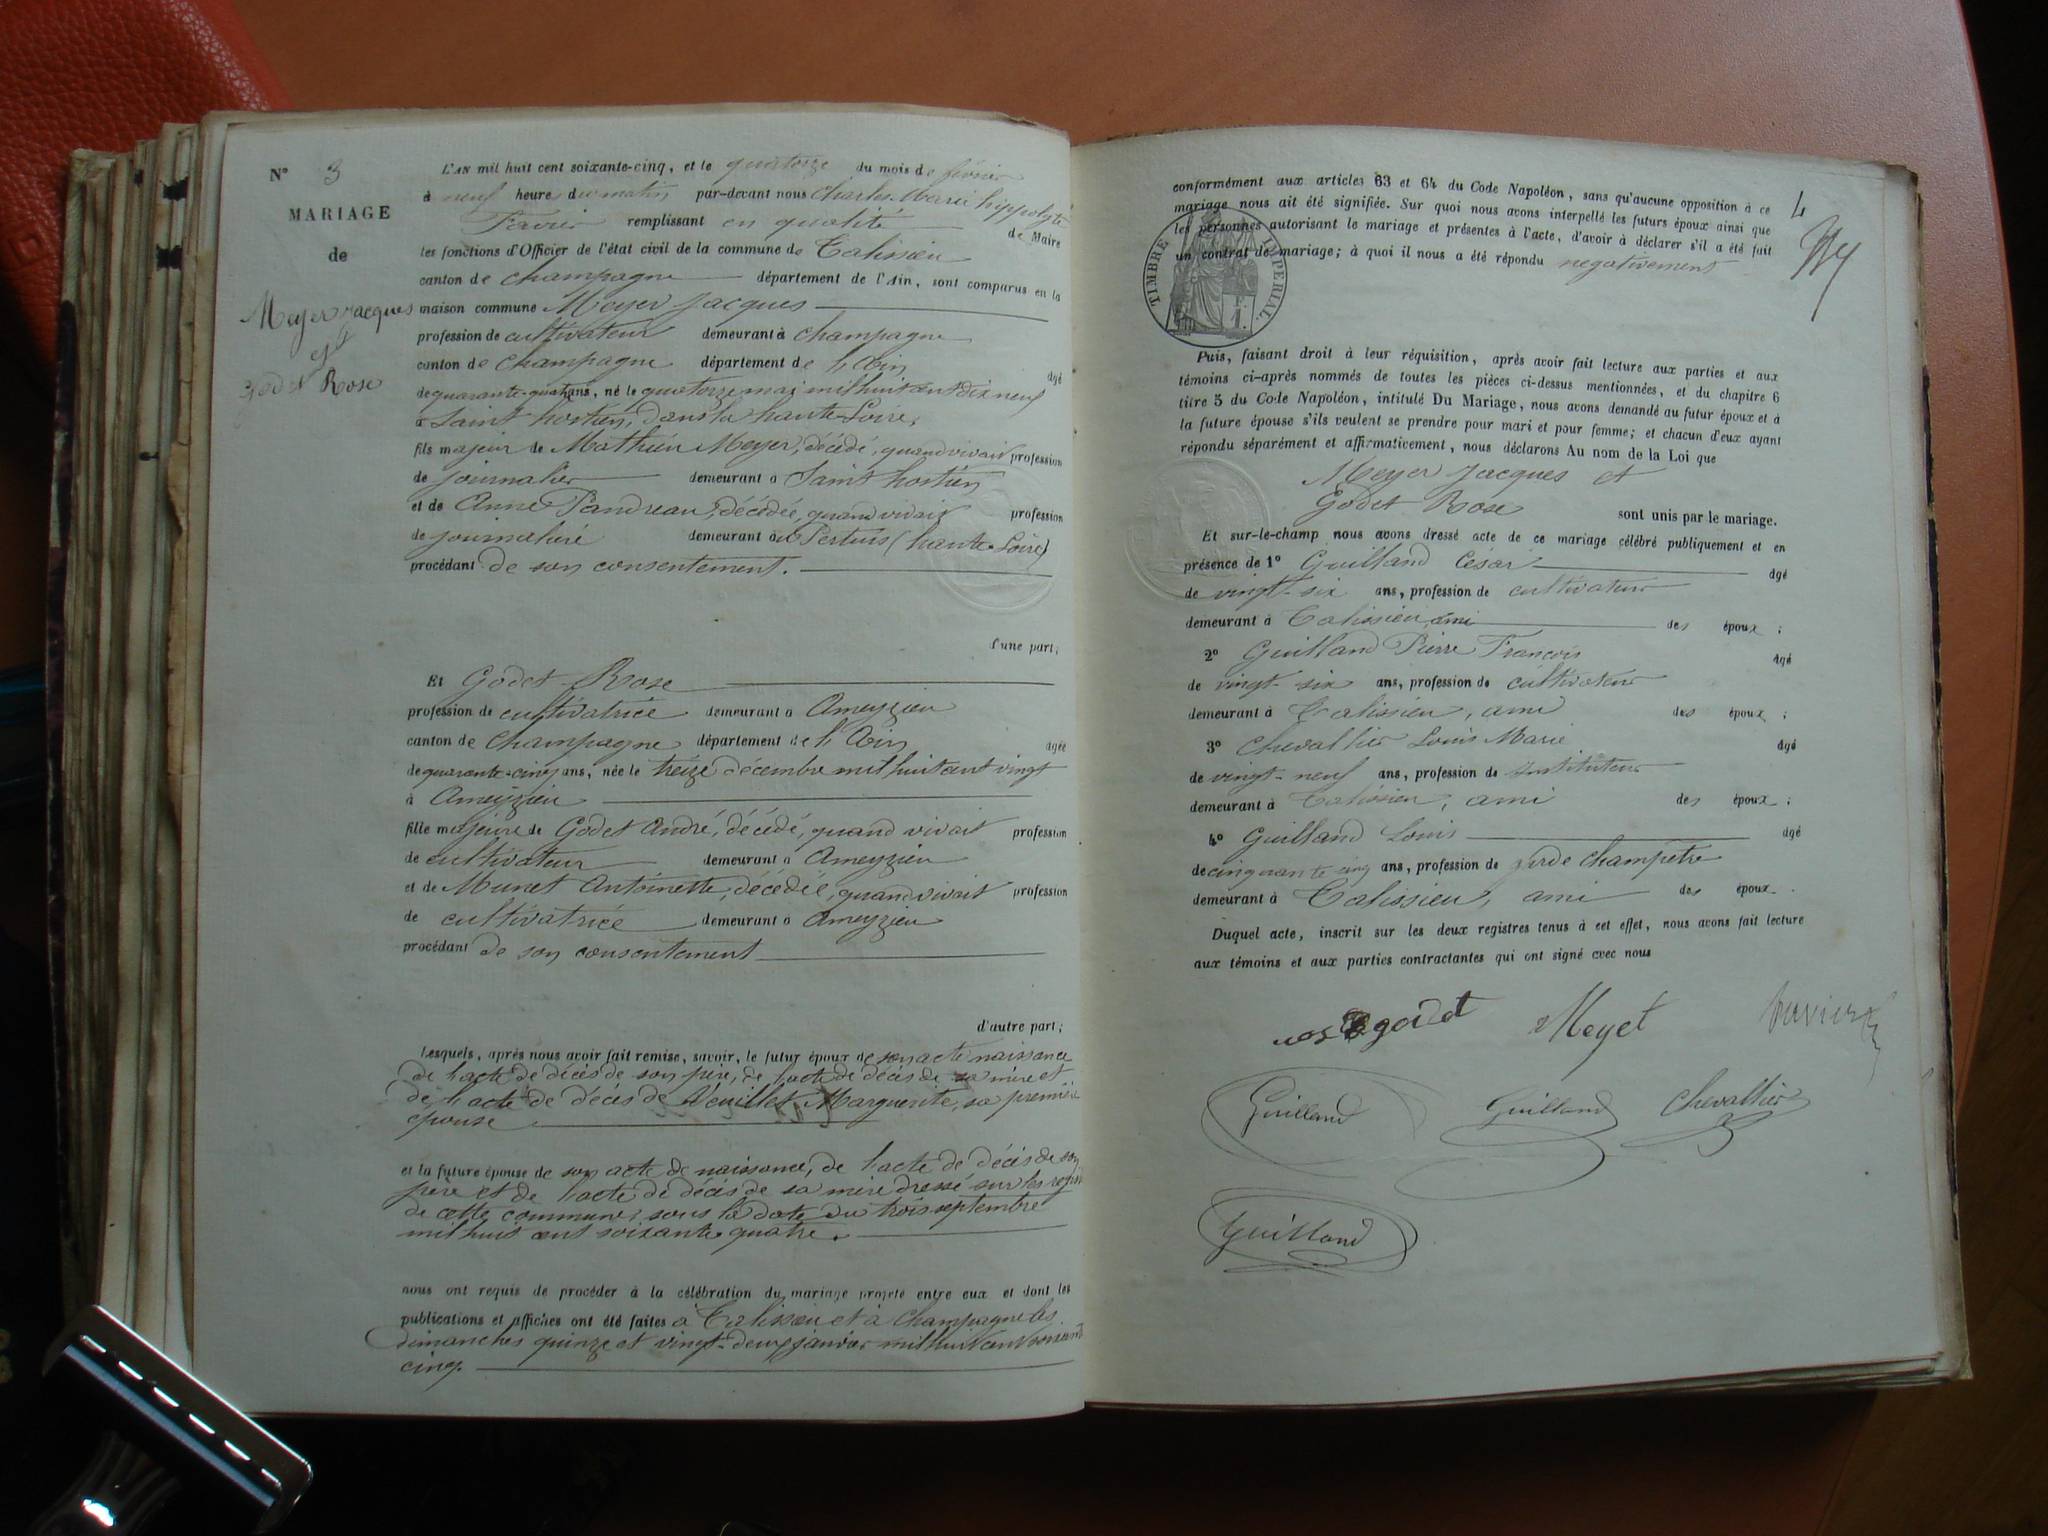 N° 3
MARIAGE
de
Meyer Jacques
et
Godet Rose
L'AN mil huit cent soixante-cinq, et le quatorze du mois de février
à neuf heure du matin par-devant nous Charles Marie hippolyte
remplissant en qualité de Maire
les fonctions d'Officier de l'état civil de la commune de Talissieu
canton de champagne département de l'Ain, sont comparus en la
maison commune Meyer Jacques
profession de cultivateur demeurant à champagne
canton de champagne département de l'Ain âgé
de quarante-quatre ans, né le quatorze mai mil huit cent dix neuf
à Saint hostien, dans la haute-Loire,
fils majeur de Mathieu Meyer, décédé, quand vivait profession
de journalier demeurant à Saint hostien
et de Anne Pandreau, décédée, quand vivait profession
de journalière demeurant au Pertuis (haute-Loire)
procédant de son consentement.
d'une part;
Et Godet Rose
profession de cultivatrice demeurant à Ameyzieu
canton de champagne département de l'Ain âgée
de quarante-cinq ans, née le treize décembre mil huit cent vingt
à Ameyzieu
fille majeure de Godet André, décédé, quand vivait profession
de cultivateur demeurant à Ameyzieu
et de Munet Antoinette, décédée, quand vivait profession
de cultivatrice demeurant à Ameyzieu
procédant de son consentement
d'autre part;
Lesquels, après nous avoir fait remise, savoir, le futur époux de son acte naissance
de l'acte de décès de son père, de l'acte de décès de sa mère et
de l'acte de décès de Veuillet Marguerite, sa première
épouse
et la future épouse de son acte de naissance, de l'acte de décès de son
père et de l'acte de décès de sa mère dressé sur les regist
de cette commune, sous la date du trois septembre
mil huit cent soixante quatre.
nous ont requis de procéder à la célébration du mariage projeté entre eux et dont les
publications et affiches ont été faites à Talissieu et à champagne les
dimanches quinze et vingt-deux janvier mil huit cent soixante
cinq.
4
conformément aux articles 63 et 64 du Code Napoléon, sans qu'aucune opposition à ce
mariage nous ait été signifiée. Sur quoi nous avons interpellé les futurs époux ainsi que
les personnes autorisant le mariage et présentes à l'acte, d'avoir à déclarer s'il a été fait
un contrat de mariage; à quoi il nous a été répondu negativement
TIMBRE IMPERIAL
Puis, faisant droit à leur réquisition, après avoir fait lecture aux parties et aux
témoins ci-après nommés de toutes les pièces ci-dessus mentionnées, et du chapitre 6
titre 5 du Code Napoléon, intitulé Du Mariage, nous avons demandé au futur époux et à
la future épouse s'ils veulent se prendre pour mari et pour femme; et chacun d'eux ayant
répondu séparément et affirmativement, nous déclarons Au nom de la Loi que
Meyer Jacques et
Godet Rose
sont unis par le mariage.
Et sur-le-champ nous avons dressé acte de ce mariage célébré publiquement et en
présence de 1° Guilland César âgé
de vingt-six ans, profession de cultivateur
demeurant à Talissieu, ami des époux;
2° Guilland Pierre François âgé
de vingt-six ans, profession de cultivateur
demeurant à Talissieu, ami des époux;
3° Chevallier Louis Marie âgé
de vingt-neuf ans, profession de instituteur
demeurant à Talissieu, ami des époux;
4° Guilland Louis âgé
de cinquante cinq ans, profession de garde champêtre
demeurant à Talissieu, ami des époux.
Duquel acte, inscrit sur les deux registres tenus à cet effet, nous avons fait lecture
aux témoins et aux parties contractantes qui ont signé avec nous
godet Meyet
Guilland Guilland Chevallier
Guilland